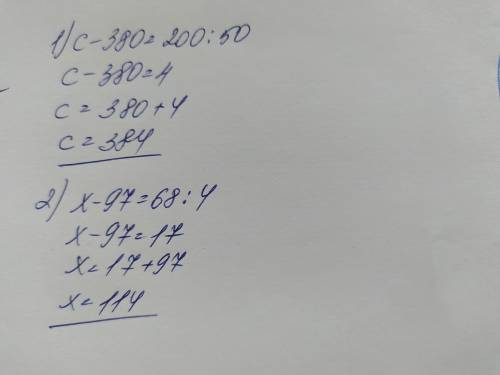 1) c-380=200:50
c-380=4
c=380+4
c=384
2) x-97=68:4
x-97=17
x=17+97
x=114